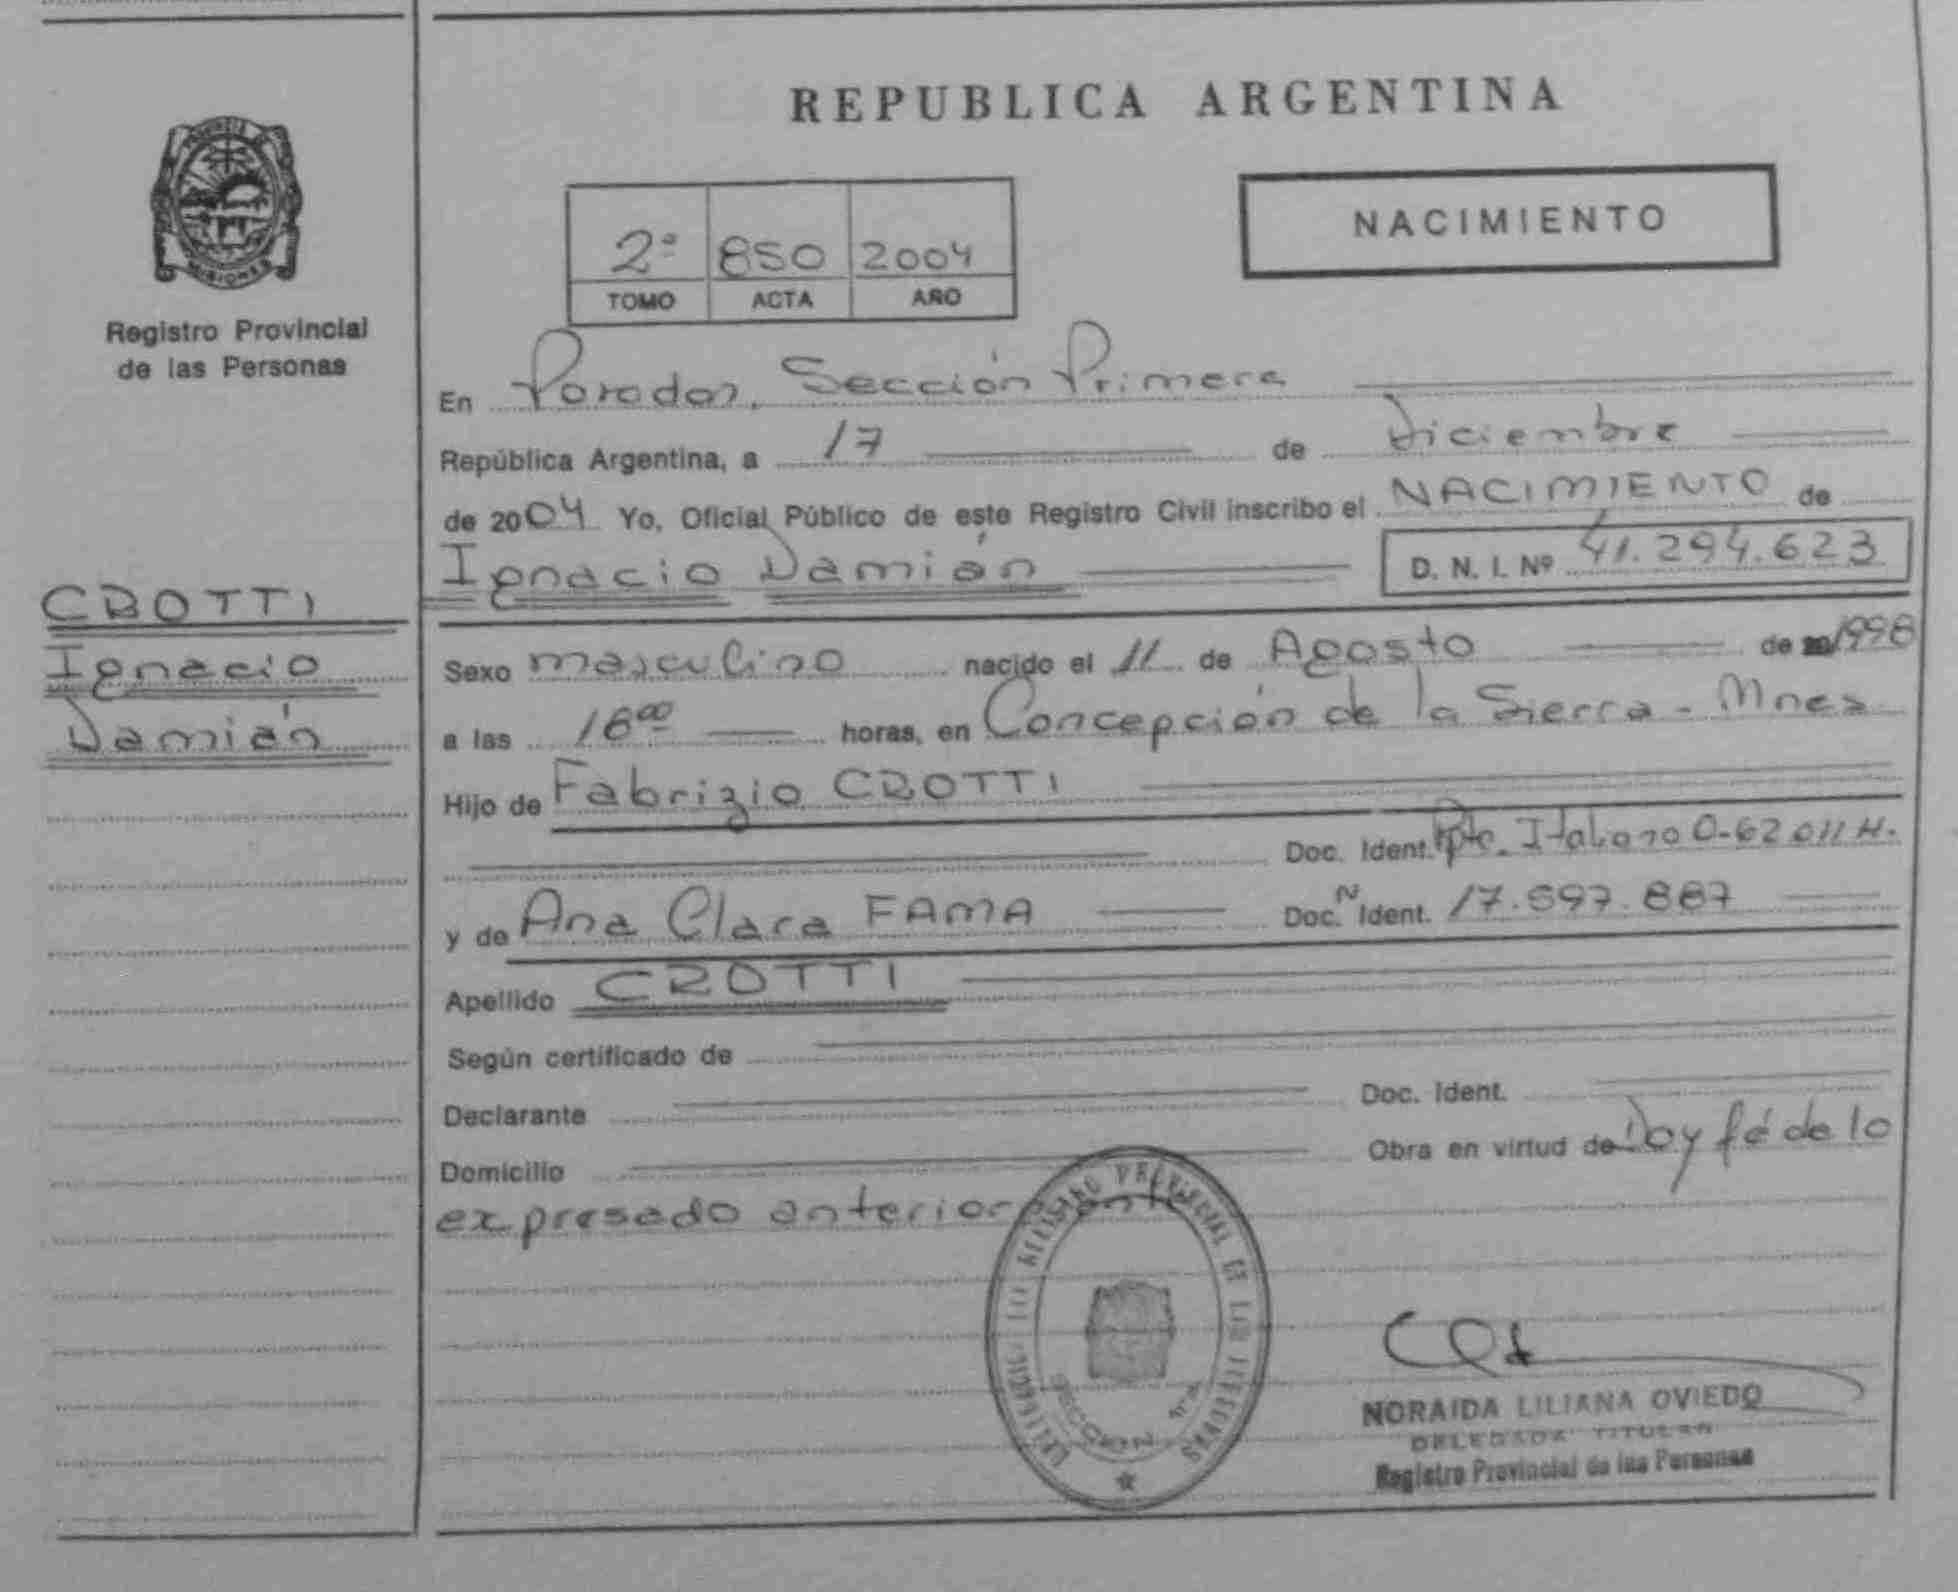 REPUBLICA ARGENTINA
NACIMIENTO
2º 850 2004
TOMO ACTA AÑO
PROVINCIA DE
MISIONES
Registro Provincial
de las Personas
En Posadas, Sección Primera
República Argentina, a 17 de Diciembre
de 2004 Yo, Oficial Público de este Registro Civil inscribo el NACIMIENTO de
Ignacio Damián D. N. I. Nº 41.294.623
CROTTI
Ignacio
Damián
Sexo masculino nacido el 11 de Agosto de 1998
a las 16⁰⁰ horas, en Concepción de la Sierra - Mnes
Hijo de Fabrizio CROTTI
Doc. Ident. Pte. Italiano 0-62 011 H.
y de Ana Clara FAMA Doc. N Ident. 17.597.887
Apellido CROTTI
Según certificado de
Declarante Doc. Ident.
Domicilio Obra en virtud de Doy fé de lo
expresado anteriormente
REGISTRO PROVINCIAL DE LAS PERSONAS
SECCION 1ra
NORAIDA LILIANA OVIEDO
DELEGADA TITULAR
Registro Provincial de las Personas